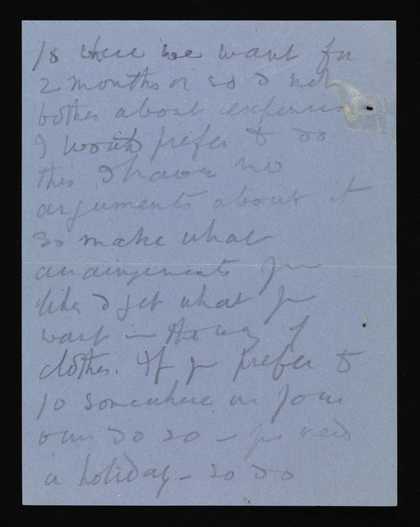 is where we want for
2 months or so & not
bother about expense
I would prefer to do
this & have no
arguments about it
so make what
arrangements you
like & get what you
want in the way of
clothes. If you prefer to
go somewhere on your
own do so – you need
a holiday – so do